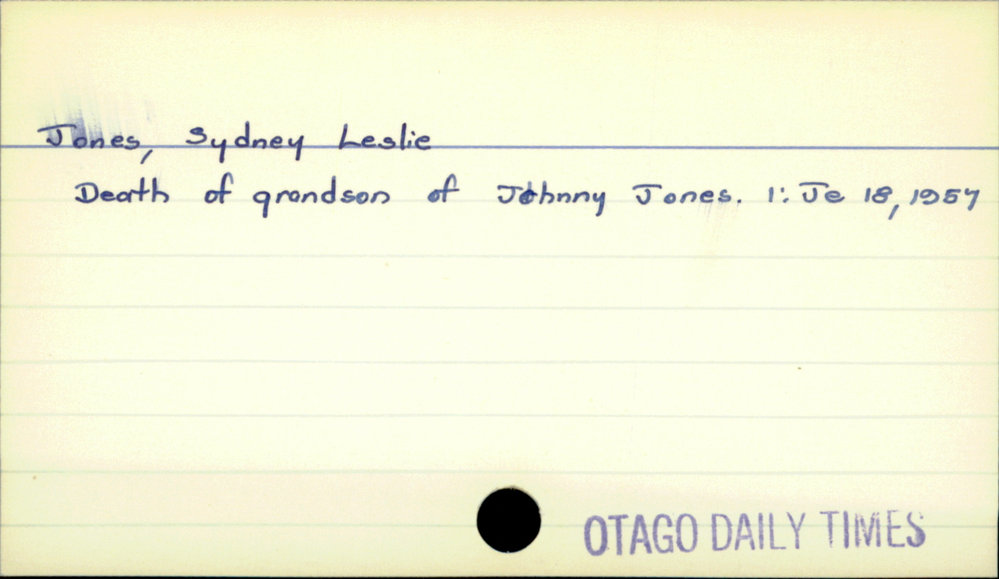 Jones, Sydney Leslie
Death of grandson of Johnny Jones. 1: Je 18, 1957
OTAGO DAILY TIMES